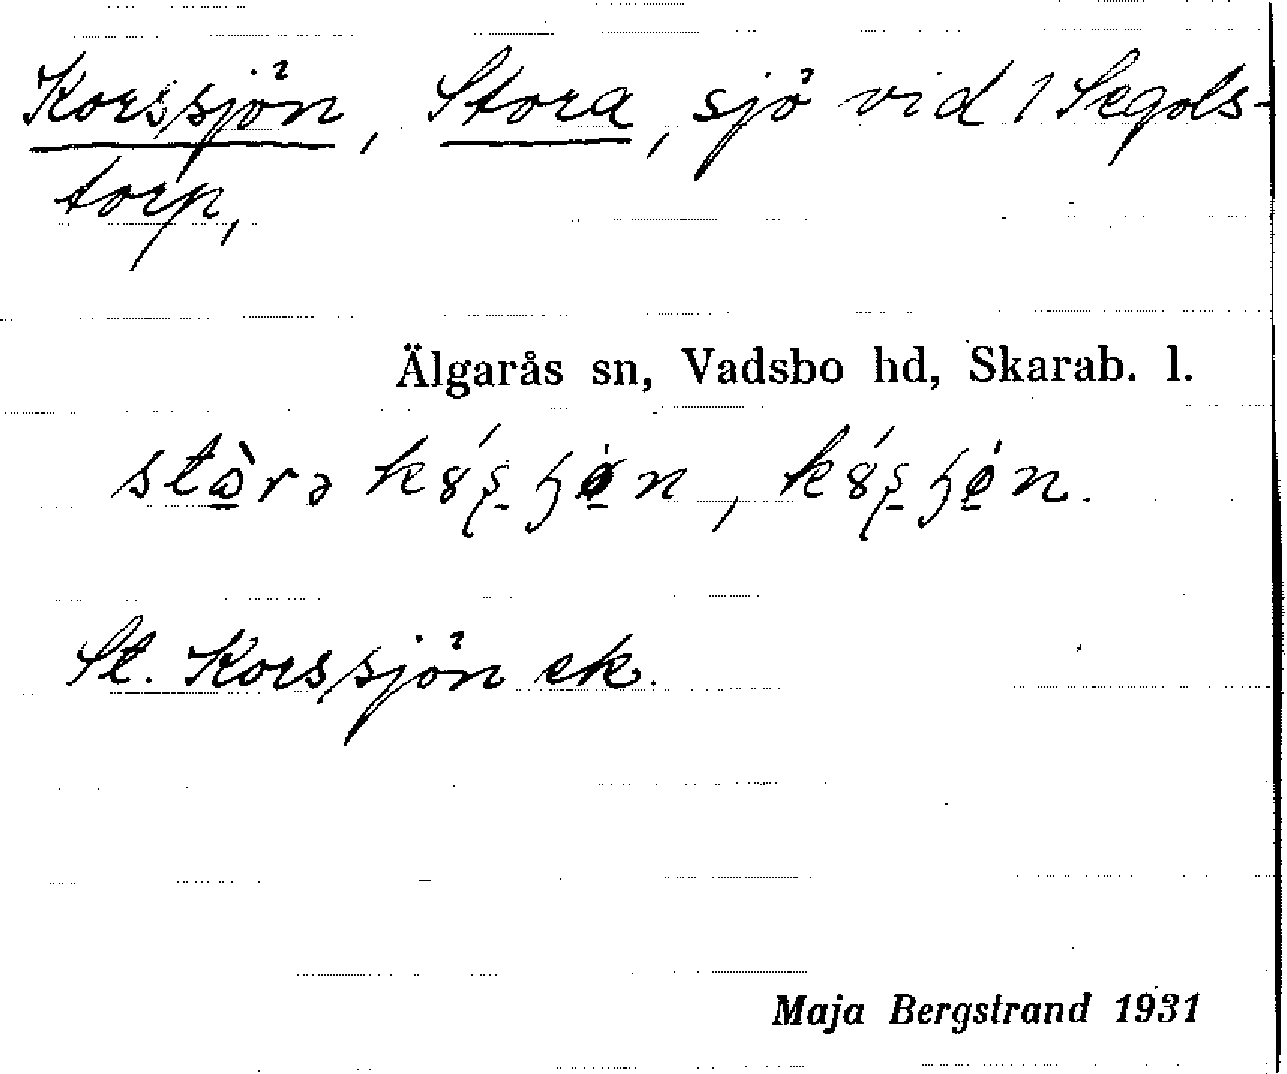 Korssjön, Stora, sjö vid 1 Segols-
torp,
Älgarås sn, Vadsbo hd, Skarab. l.
St. Korssjön ek.
Maja Bergstrand 1931